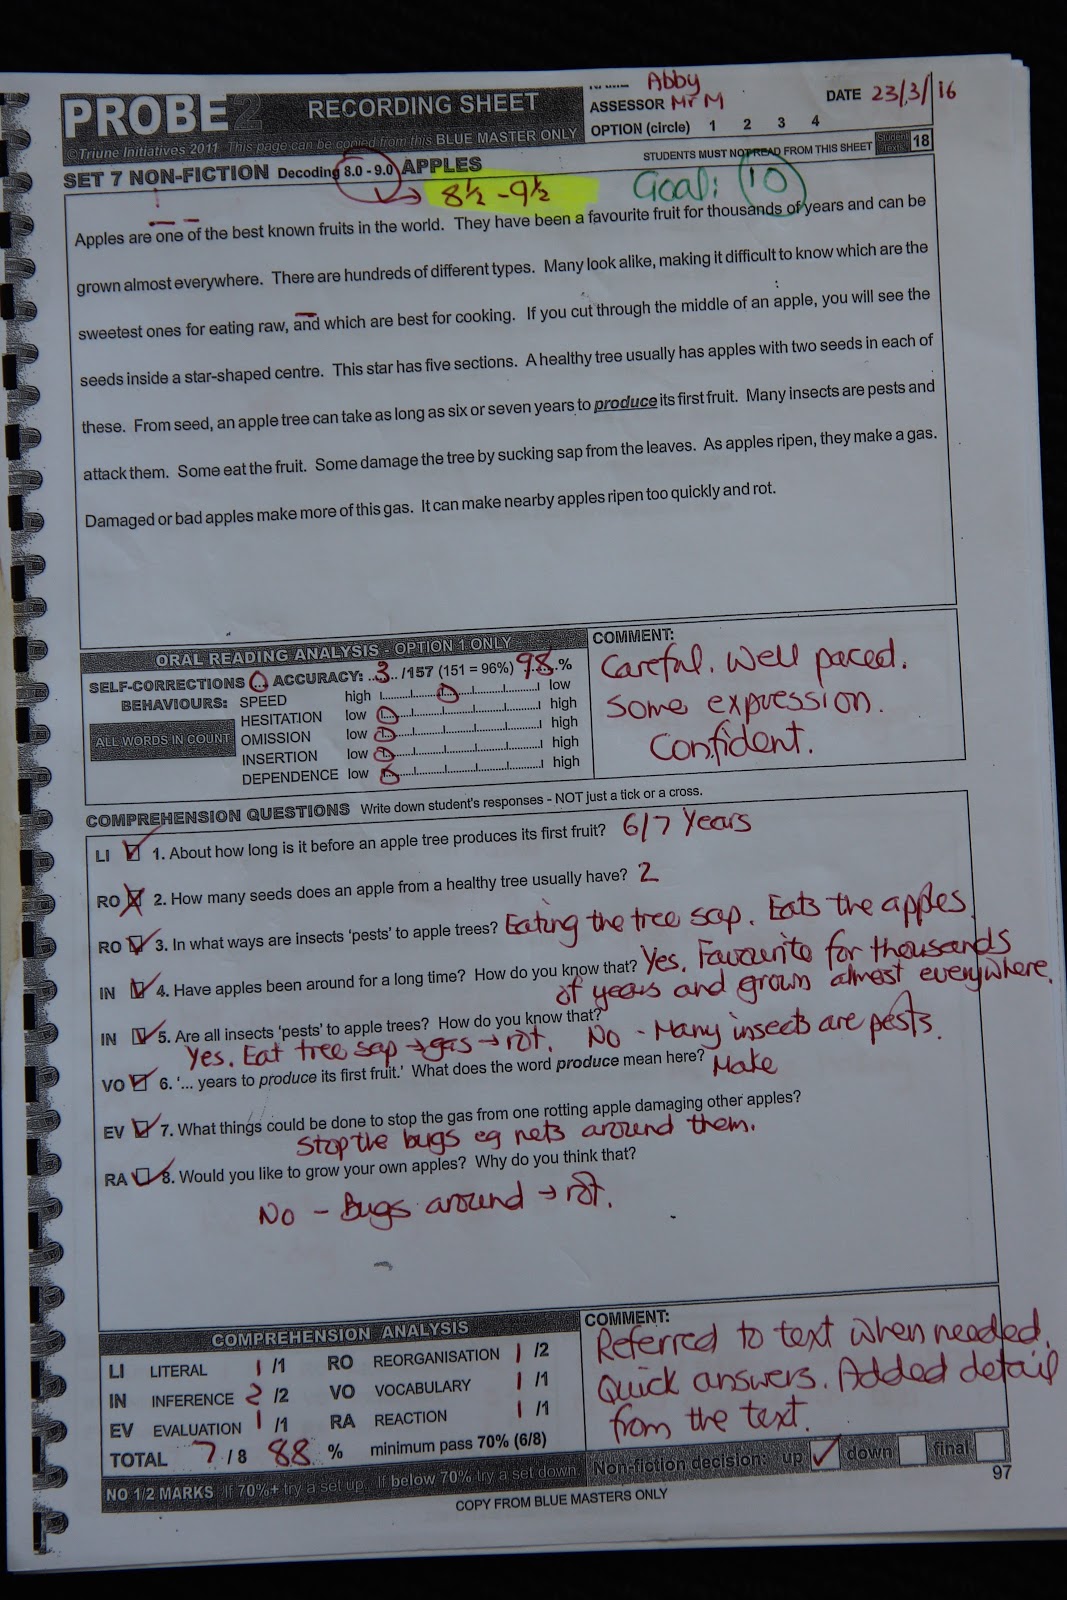 PROBE2 RECORDING SHEET
Abby
ASSESSOR Mr M DATE 23/3/16
©Triune Initiatives 2011 This page can be copied from this BLUE MASTER ONLY
OPTION (circle) 1 2 3 4
STUDENTS MUST NOT READ FROM THIS SHEET Student Texts: 18
SET 7 NON-FICTION Decoding 8.0 - 9.0 APPLES
8½ - 9½ Goal: 10
Apples are one of the best known fruits in the world. They have been a favourite fruit for thousands of years and can be
grown almost everywhere. There are hundreds of different types. Many look alike, making it difficult to know which are the
sweetest ones for eating raw, and which are best for cooking. If you cut through the middle of an apple, you will see the
seeds inside a star-shaped centre. This star has five sections. A healthy tree usually has apples with two seeds in each of
these. From seed, an apple tree can take as long as six or seven years to produce its first fruit. Many insects are pests and
attack them. Some eat the fruit. Some damage the tree by sucking sap from the leaves. As apples ripen, they make a gas.
Damaged or bad apples make more of this gas. It can make nearby apples ripen too quickly and rot.
ORAL READING ANALYSIS - OPTION 1 ONLY
SELF-CORRECTIONS 0 ACCURACY: 3 /157 (151 = 96%) 98 %
BEHAVIOURS: SPEED high low
HESITATION low high
ALL WORDS IN COUNT OMISSION low high
INSERTION low high
DEPENDENCE low high
COMMENT:
Careful. Well paced.
Some expression.
Confident.
COMPREHENSION QUESTIONS Write down student's responses - NOT just a tick or a cross.
LI 1. About how long is it before an apple tree produces its first fruit? 6/7 Years
RO 2. How many seeds does an apple from a healthy tree usually have? 2
RO 3. In what ways are insects 'pests' to apple trees? Eating the tree sap. Eats the apples
IN 4. Have apples been around for a long time? How do you know that? Yes. Favourite for thousands
of years and grown almost everywhere.
IN 5. Are all insects 'pests' to apple trees? How do you know that?
Yes. Eat tree sap → gas → rot. No - Many insects are pests.
VO 6. '... years to produce its first fruit.' What does the word produce mean here? Make
EV 7. What things could be done to stop the gas from one rotting apple damaging other apples?
Stop the bugs eg nets around them.
RA 8. Would you like to grow your own apples? Why do you think that?
No - Bugs around → rot.
COMPREHENSION ANALYSIS
LI LITERAL 1 /1 RO REORGANISATION 1 /2
IN INFERENCE 2 /2 VO VOCABULARY 1 /1
EV EVALUATION 1 /1 RA REACTION 1 /1
TOTAL 7 /8 88 % minimum pass 70% (6/8)
NO 1/2 MARKS If 70%+ try a set up. If below 70% try a set down
COMMENT:
Referred to text when needed.
Quick answers. Added detail
from the text.
Non-fiction decision: up down final
97
COPY FROM BLUE MASTERS ONLY